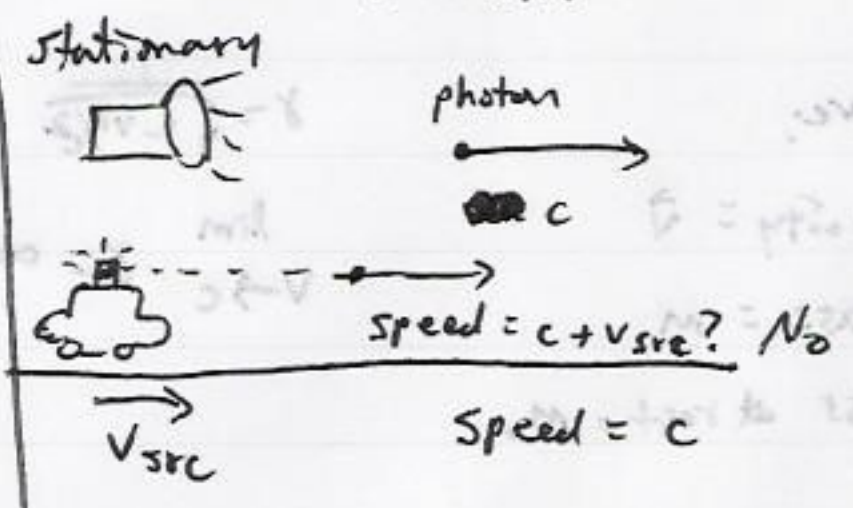 stationary
photon
c
speed = c + v src? No
v src
speed = c